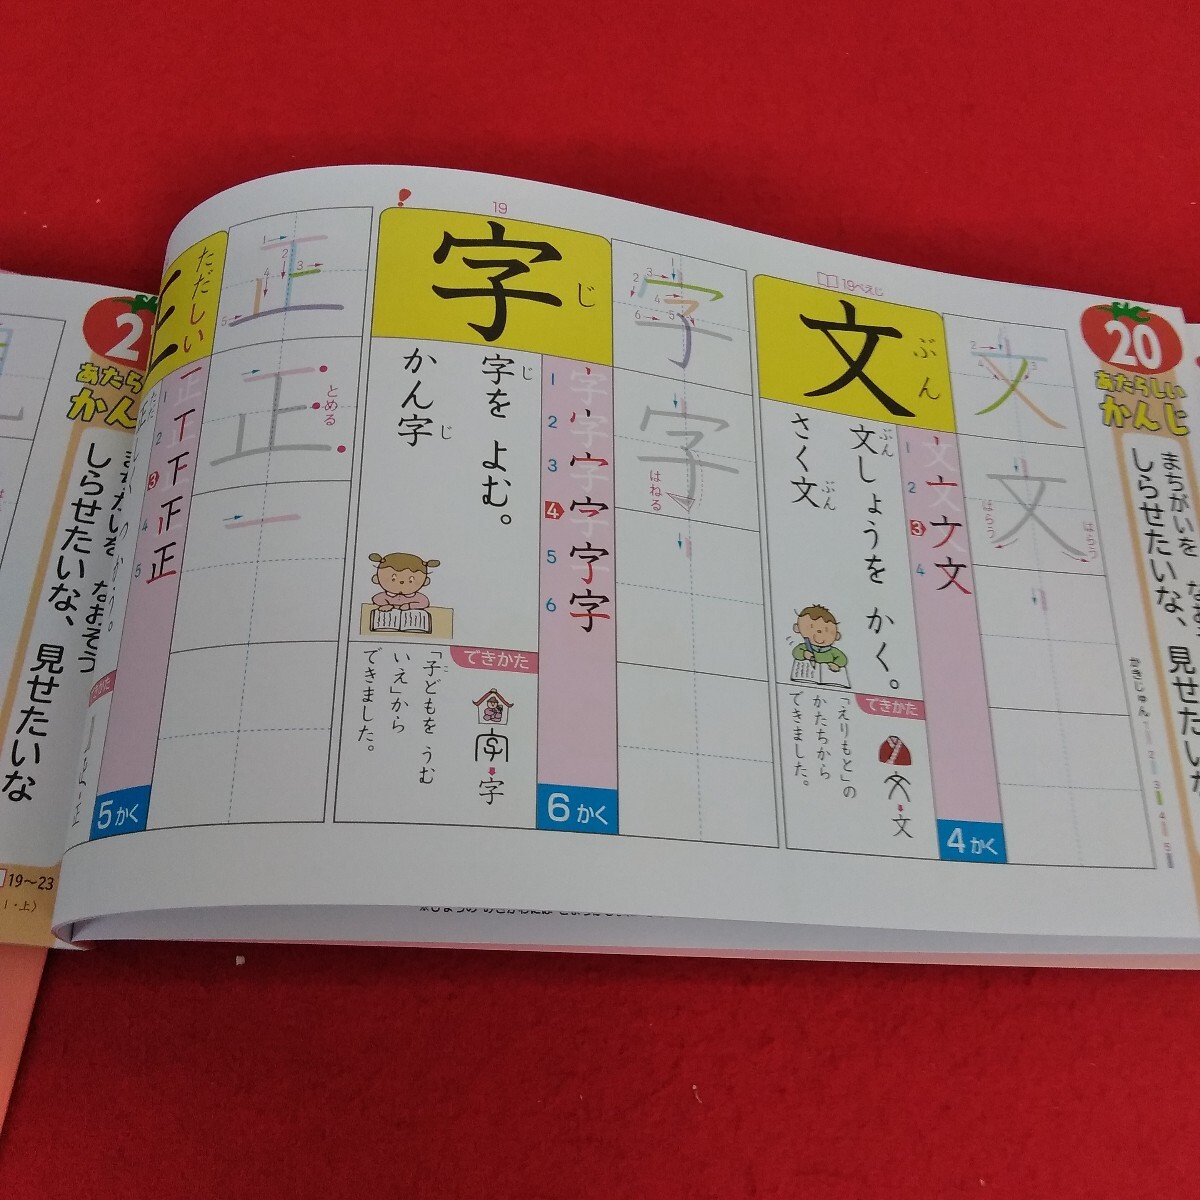 20
あたらしい
かんじ
まちがいを なおそう
しらせたいな、見せたいな
かきじゅん 1 2 3 4 5
19ぺえじ
文
ぶん
文しょうを かく。
ぶん
さく文
ぶん
1
2
3
4
はらう
はらう
できかた
「えりもと」の
かたちから
できました。
文
4かく
19
字
じ
字を よむ。
じ
かん字
じ
1
2
3
4
5
6
はねる
できかた
「子どもを うむ
こ
いえ」から
できました。
字
6かく
正
ただしい
とめる
1
2
3
4
5
5かく
あたら
かん
しらせたいな、見せたいな
19〜23